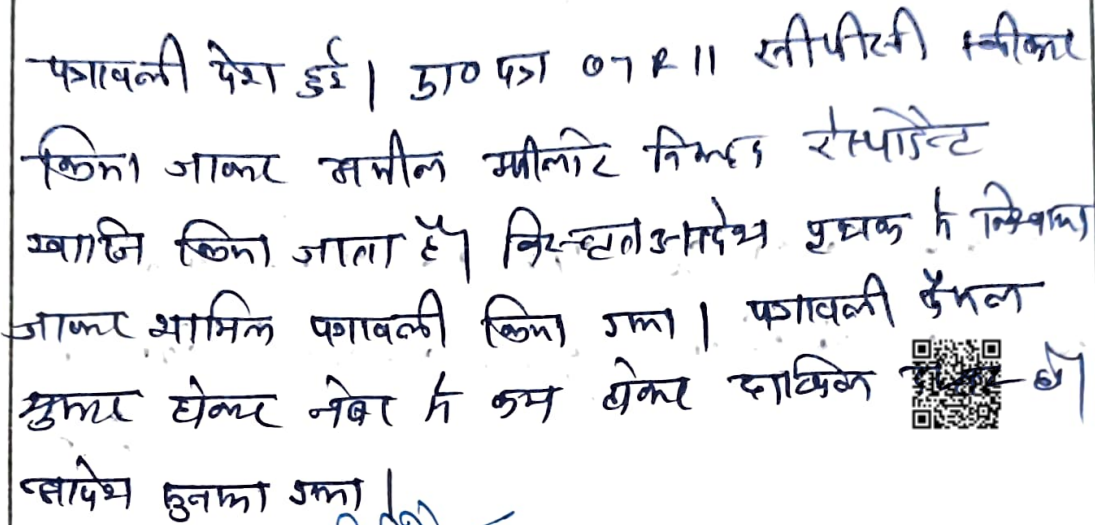 पत्रावली पेश हुई। प्रा० पत्र 07 R 11 सीपीसी स्वीकार
किया जाकर अपील अपीलांट विरुद्ध रेस्पोडेन्ट
खारिज किया जाता है। विस्तृत आदेश पृथक से लिखवाया
जाकर शामिल पत्रावली किया गया। पत्रावली फैसल
शुमार होकर नंबर से कम होकर दाखिल हो।
आदेश सुनाया गया।